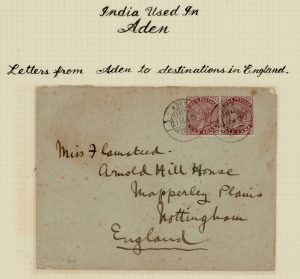 India Used In
Aden
Letters from Aden to destinations in England.
Miss Flamstead.
Arnold Hill House
Mapperley Plains
Nottingham
England